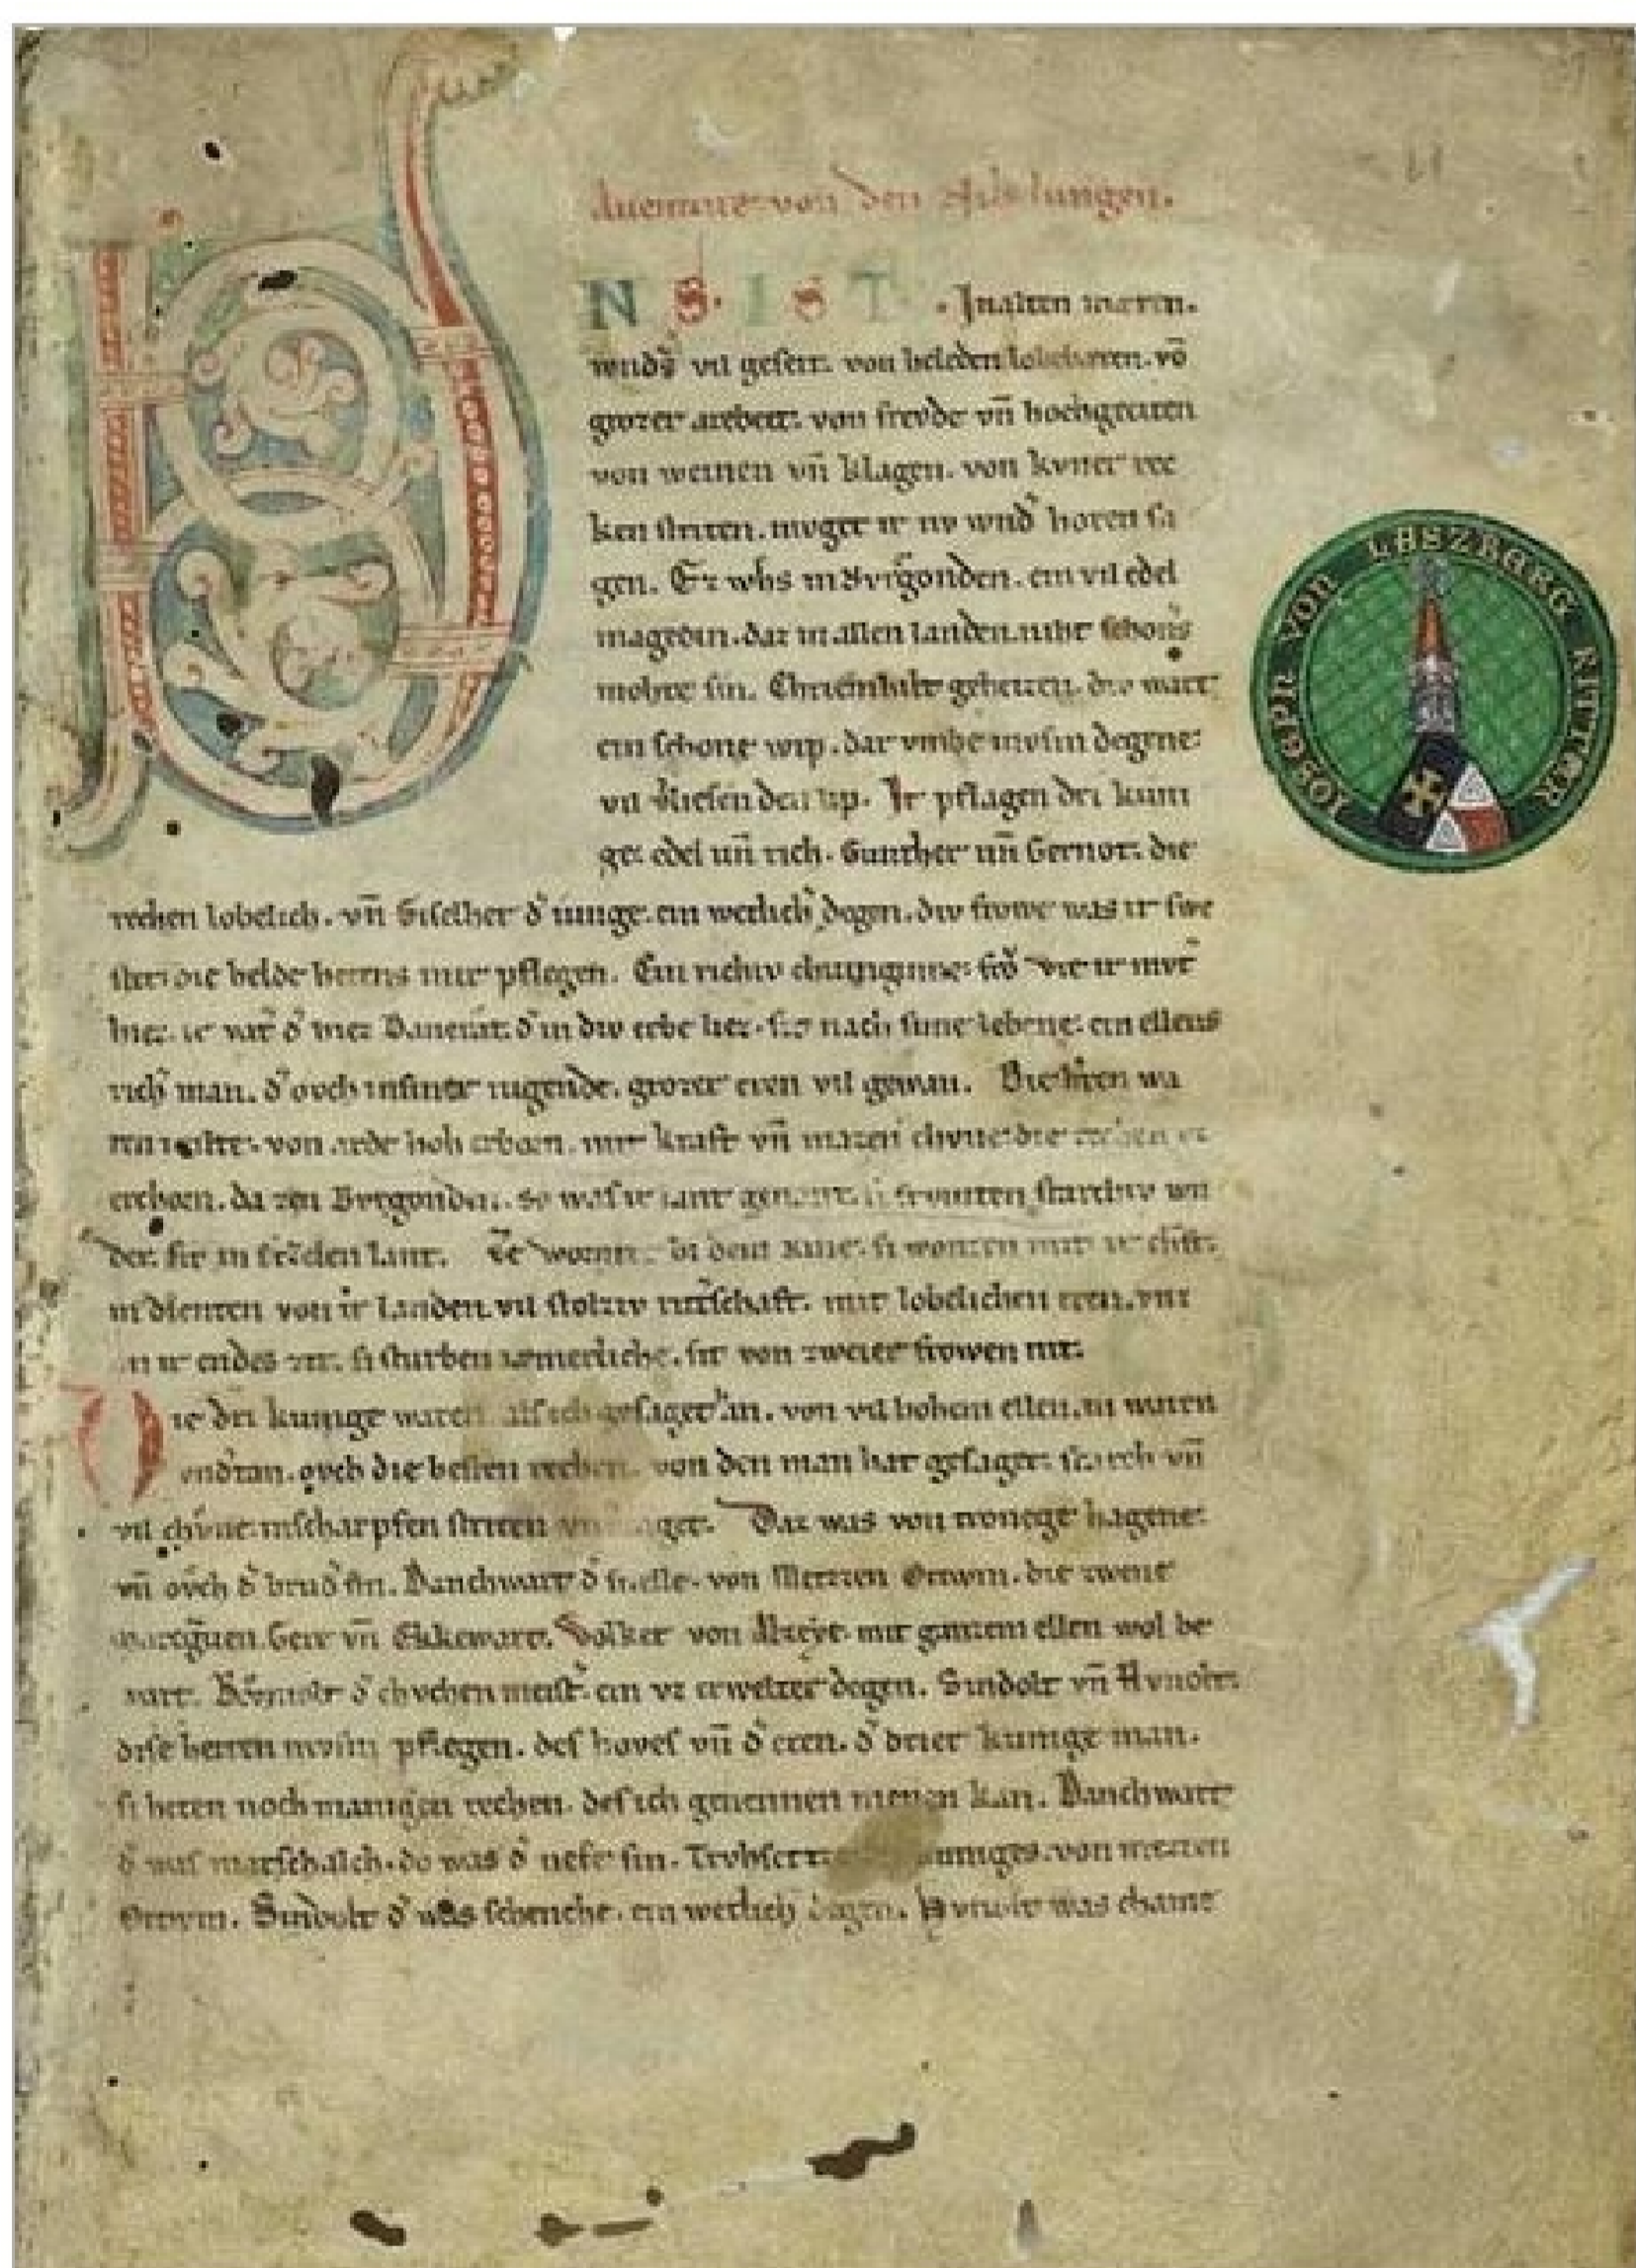 Auenture von den Nibelungen.
VNS. IST. In alten mæren.
wnds̄ vil geseit. von heleden lobebæren. vō
grozer arebeit. von frevde vn̄ hochgeciten
von weinen vn̄ klagen. von kvner rec
ken striten. mvget ir nv wnd̄ horen sa
gen. Ez whs in Bvrgonden. ein vil edel
magedin. daz in allen landen. niht schons
mohte sin. Chriemhilt geheizen. div wart
ein schone wip. dar vmbe mvsin degene
vil v̄liesen den lip. Ir pflagen dri kuni
ge edel un̄ rich. Gunther un̄ Gernot. die
rechen lobelich. vn̄ Giselher d̄ iunge. ein wetlich̄ degen. div frowe was ir swe
ster. die helde hetens mir pflegen. Ein richiv chuniginne. frǒ vte ir mvt̄
hiez. ir vat̄ d̄ hiez Dancrat. d̄ in div erbe liez. sit nach sime lebene. ein ellens
rich̄ man. d̄ ovch in siner iugende. grozer eren vil gewan. Die h̄ren wa
ren milte. von arde hoh erborn. mit kraft vn̄ mazen chvne. die rechen vz
erchorn. da zen Bvrgonden. so was ir lant genant. si frvmten starchiv wn
der. sit in Etzelen lant. Ze wormz. bi dem Rine. si wonten mit ir chft.
in dienten von ir landen. vil stolziv rit̄schaft. mit lobelichen eren. vnz
an ir endes zit. si sturben iæmerliche. sit von zweier frowen nit.
Die dri kunige waren als ich gesaget han. von vil hohem ellen. in waren
vnd̄tan. ovch die besten rechen. von den man hat gesaget. starch vn̄
vil chvne. in scharpfen striten vn̄ zaget. Daz was von tronege hagene.
vn̄ ovch d̄ brud̄ sin. Danchwart d̄ snelle. von Metzzen Ortwin. die zwene
marcḡuen. Gere vn̄ Ekkewart. Volker von Alzeye. mit ganzem ellen wol be
wart. Rv̊molt d̄ chvchen meist̄. ein vz erwelter degen. Sindolt vn̄ Hvnolt.
dise herren mvsin pflegen. des hoves vn̄ d̄ eren. d̄ drier kunige man.
si heten noch manigen rechen. des ich genennen nienen kan. Danchwart
d̄ was marschalch. do was d̄ nefe sin. Trvhsetze kuniges. von metzen
Ortwin. Sindolt d̄ was schenche. ein wetlich degen. Hvnolt was chame
IOSEPH VON LASZBERG RITTER